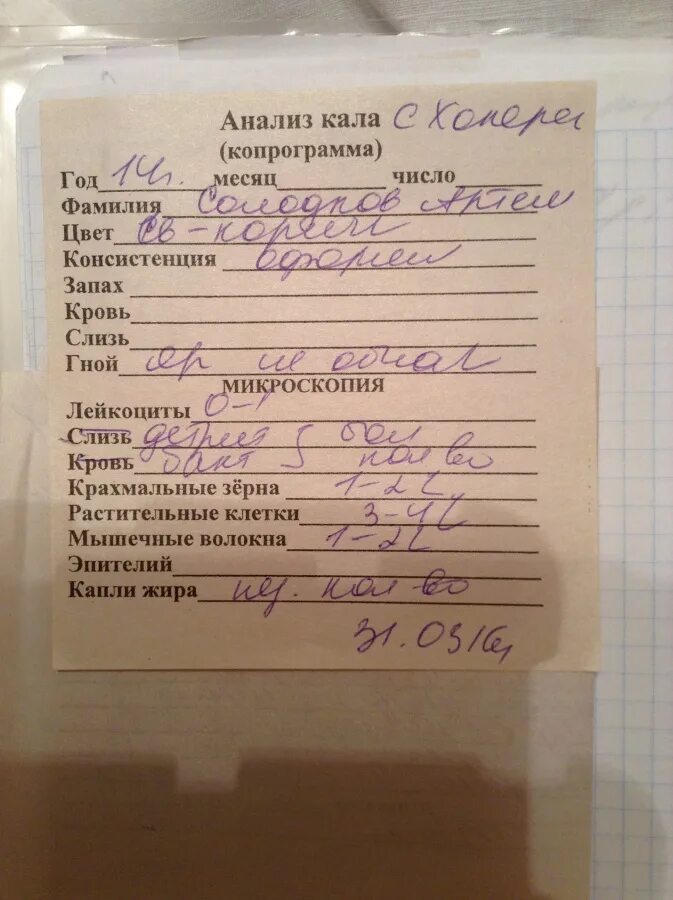 Анализ кала с Хопера
(копрограмма)
Год 14г. месяц число
Фамилия Солодков Артем
Цвет св-коричн
Консистенция оформ
Запах
Кровь
Слизь
Гной яг не обнар
МИКРОСКОПИЯ
Лейкоциты 0-1
Слизь детрит } бол
Кровь бакт кол во
Крахмальные зёрна 1-2
Растительные клетки 3-4
Мышечные волокна 1-2
Эпителий
Капли жира нез. кол-во
31.03.16г